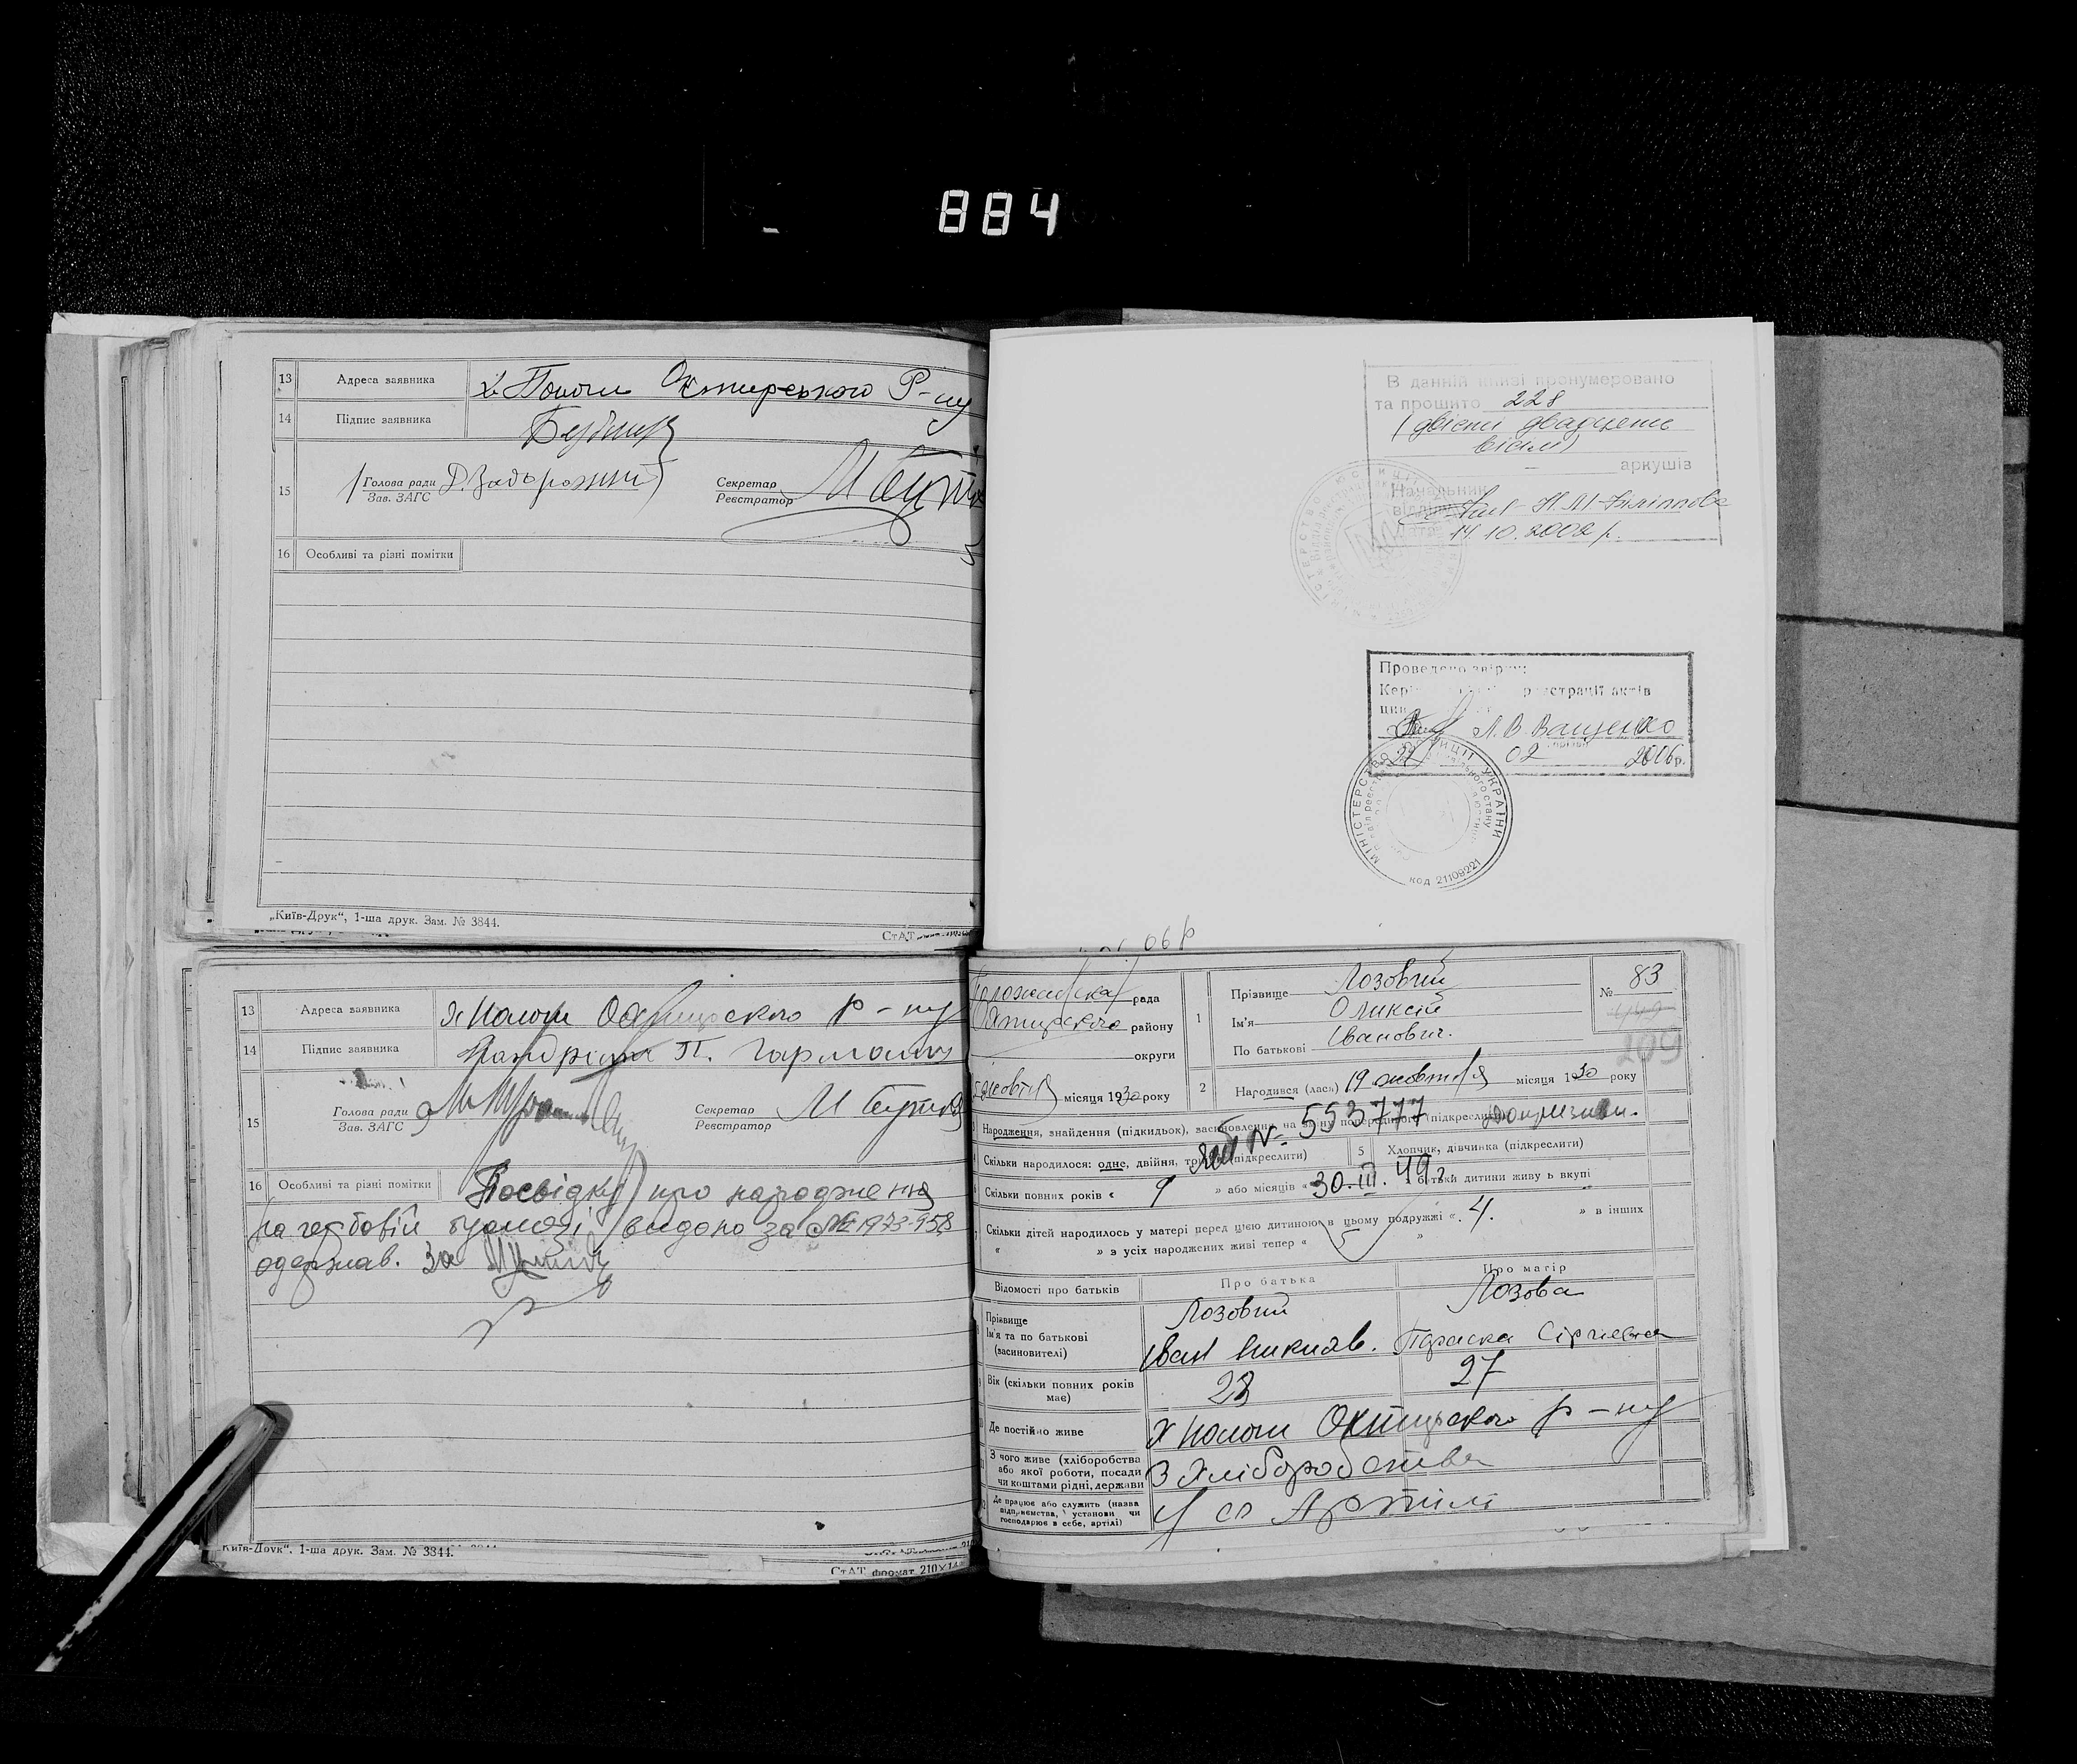 884
13 Адреса заявника х. Пологи Охтирського Р-ну
14 Підпис заявника
15 Голова ради Д. Задорожний Секретар
Зав. ЗАГС Реєстратор
16 Особливі та різні помітки
„Київ-Друк“, 1-ша друк. Зам. № 3844.
СтАТ
В данній книзі пронумеровано
та прошито 228
(двісти двадцять
вісім)
аркушів
Начальник
відділу Н.М. Филіппова
14.10.2002 р.
Проведено звірку:
реєстрації актів
Л.В. Ващенко
22 02 2006 р.
МІНІСТЕРСТВО ЮСТИЦІЇ УКРАЇНИ
код 21109221
06 р
13 Адреса заявника х Пологи р-ну
14 Підпис заявника
15 Голова ради Секретар
Зав. ЗАГС Реєстратор
16 Особливі та різні помітки Посвідку про народження
на гербовій бумазі видано за № 1973958
одержав. За
Київ-Друк“, 1-ша друк. Зам. № 3844.
СтАТ формат 210×14
рада
Охтирського району
округи
жовтня місяця 1930 року
1 Прізвище Лозовий
Ім'я Оликсій
По батькові Іванович.
№ 83
209
2 Народився (лась) 19 жовтня місяця 1930 року
Народження, знайдення (підкидьок), засиновлення, на зміну попереднього (підкреслити)
№ 553777
Скільки народилося: одне, двійня, трійня (підкреслити) 5 Хлопчик, дівчинка (підкреслити)
Скільки повних років « 9 » або місяців « » батьки дитини живуть вкупі
30.III.49 г
Скільки дітей народилось у матері перед цією дитиною в цьому подружжі « 4. » в інших
« » з усіх народжених живі тепер « 5 »
Відомості про батьків Про батька Про матір
Прізвище Лозовий Лозова
Ім'я та по батькові
(засиновителі) Іван Параска Сіргиевна
Вік (скільки повних років
має) 28 27
Де постійно живе х Пологи Охтирського р-ну
З чого живе (хліборобства
або якої роботи, посади
чи коштами рідні, держави З Хліборобства
Де працює або служить (назва
підприємства, установи чи
господарює в себе, артілі) У с Артілі